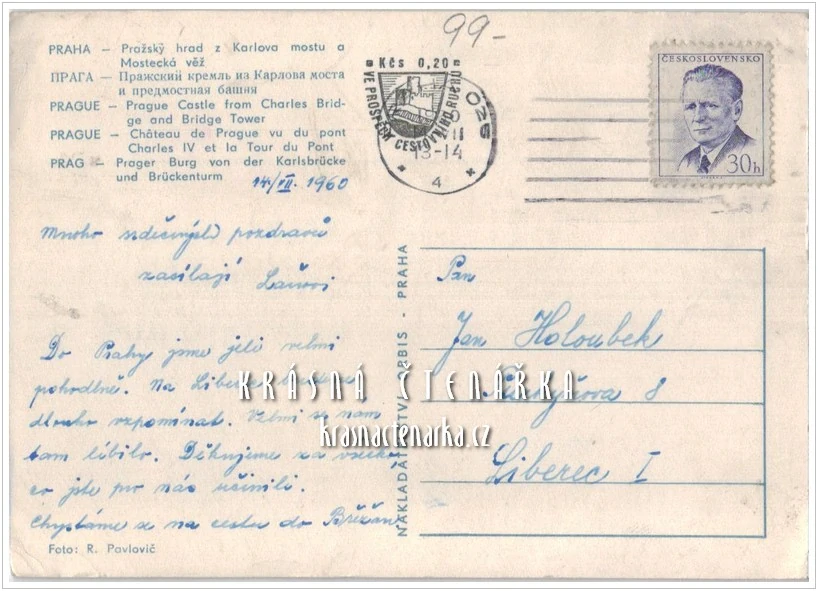 99-
PRAHA — Pražský hrad z Karlova mostu a
Mostecká věž
ПРАГА — Пражский кремль из Карлова моста
и предмостная башня
PRAGUE — Prague Castle from Charles Brid-
ge and Bridge Tower
PRAGUE — Château de Prague vu du pont
Charles IV et la Tour du Pont
PRAG — Prager Burg von der Karlsbrücke
und Brückenturm
14/VII. 1960
Kčs 0,20
VE PROSPĚCH CESTOVNÍHO RUCHU
025
13-14
4
ČESKOSLOVENSKO
30h
Mnoho srdečných pozdravů
zasílají
Do Prahy jsme jeli velmi
pohodlně. Na Liberec budeme
dlouho vzpomínat. Velmi se nám
tam líbilo. Děkujeme za všechno
co jste pro nás učinili.
Chystáme se na cestu do Břežan.
Foto: R. Pavlovič
NAKLADATELSTVÍ ORBIS - PRAHA
Pan
Jan Holoubek
8
Liberec I
KRÁSNÁ ČTENÁŘKA
krasnactenarka.cz